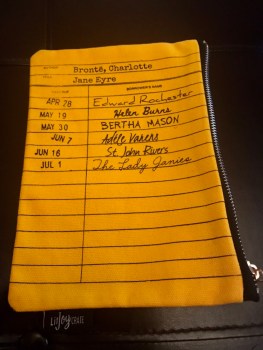 Brontë, Charlotte
Jane Eyre
BORROWER'S NAME
APR 28 Edward Rochester
MAY 19 Helen Burns
MAY 30 BERTHA MASON
JUN 7 Adèle Varens
JUN 16 St. John Rivers
JUL 1 The Lady Janies
LITJOY CRATE